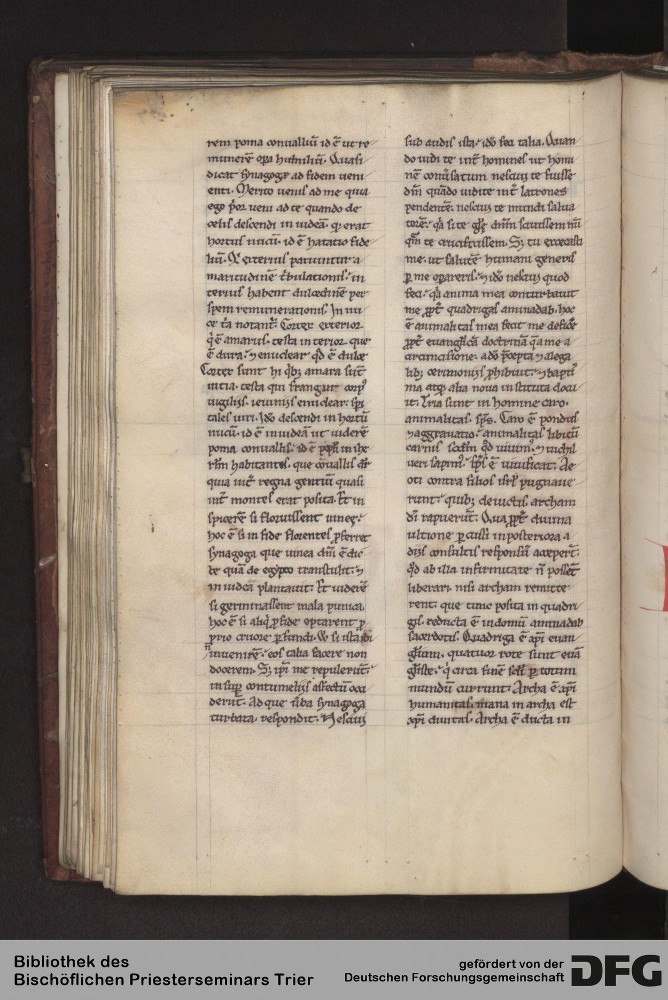 rem poma conualliū id ē ut re
munerē oꝑa humiliū. Quasi
dicat synagogę ad fidem ueni
enti. Merito uenis ad me quia
ego p̄or ueni ad te quando de
celis descendi in iudeā. q̄ erat
hortus nucū. id ē habitatio fide
liū. exterius patiuntur a
maritudinē tribulationis. in
terius habent dulcedinē per
spem remunerationis. In nu
ce tria notant̄. Cortex exterior
q̄ ē amarus. testa interior que
ē dura. ⁊ enuclear̄ qd̄ ē dulce
Cortex sunt hi qͥbꝫ amara sūt
uitia. testa qui frangunt corpꝰ
uigiliis. ieiuniis. enuclear̄ spi
tales uiri. Ido descendi in hortū
nucū. id ē in iudeā ut uiderē
poma conuallis. id ē pplm in ihe
rłm habitantes. que cōuallis dr̄
quia int̄ regna gentiū quasi
int̄ montes erat posita. Et in
spicerē si floruissent uineę.
hoc ē si in fide florentes ꝓferret
synagoga que uinea dn̄i ē dic
te quā de egypto transtulit. ⁊
in iudeā plantauit. Et uiderē
si germinassent mala punica.
hoc ē si aliqͥ ꝓ fide optarent ꝓ
prio cruore ꝑfundi. si ista ibi
inuenirē. eos talia facere non
docerem. Sꝫ ipsi me repulerūt.
insuꝑ contumeliis affectū occi
derūt. Ad que uerba synagoga
turbata respondit. Nesciui
sub audis ista. ido feci talia. Quan
do uidi te int̄ homines ut homi
nē conuersatum nesciui te fuisse
dn̄m. quādo uidi te int̄ latrones
pendentē. nesciui te mundi salua
torē. qa si te glę dn̄m sciuissem nū
qm̄ te crucifixissem. Sꝫ tu excecasti
me. ut salutē humani generis
ꝑ me oꝑareris. ⁊ ido nesciui quod
feci. qa anima mea conturbauit
me ꝓpt̄ quadrigas aminadab. hoc
ē animalitas mea fecit me deficere
ꝓpt̄ euangelicā doctrinā. q̄ a me a
circumcisione. ado p̄cepta ⁊ a lega
libꝫ cerimoniis phibuit. ⁊ baptis
ma atqꝫ alia noua instituta docu
it. Tria sunt in homine caro.
animalitas. spc̄. Caro ē pondus
⁊ aggrauatio. animalitas libitū
carnis secdm qd̄ uiuimꝰ. ⁊ nichil
ueri sapimꝰ. sps ē uiuificat. Ac
oti contra filios isrł pugnaue
runt. quibꝫ deuictis. archam
dī rapuerūt. Qua ꝓpt̄ diuina
ultione ꝑcussi in posteriora a
diis consultis responsū acceperūt.
qd̄ ab illa infirmitate n̄ possēt
liberari. nisi archam remitte
rent. que tunc posita in quadri
gis. reducta ē in domū aminadab
sacerdotis. Quadriga ē xpi euan
gełium. quatuor rote sunt euā
gełiste. q̄ circa finē secłi ꝑ totum
mundū currunt. Archa ē xpi
humanitas. mana in archa est
xpi diuinitas. Archa ē ducta in
Bibliothek des
Bischöflichen Priesterseminars Trier
gefördert von der
Deutschen Forschungsgemeinschaft
DFG